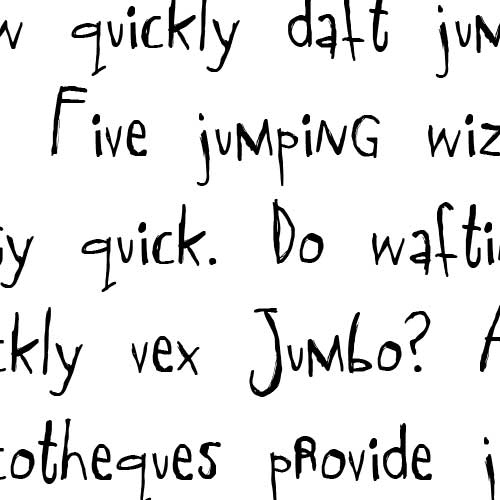 w quickly daft jum
Five jumping wiz
y quick. Do wafti
ckly vex Jumbo? A
cotheques provide j